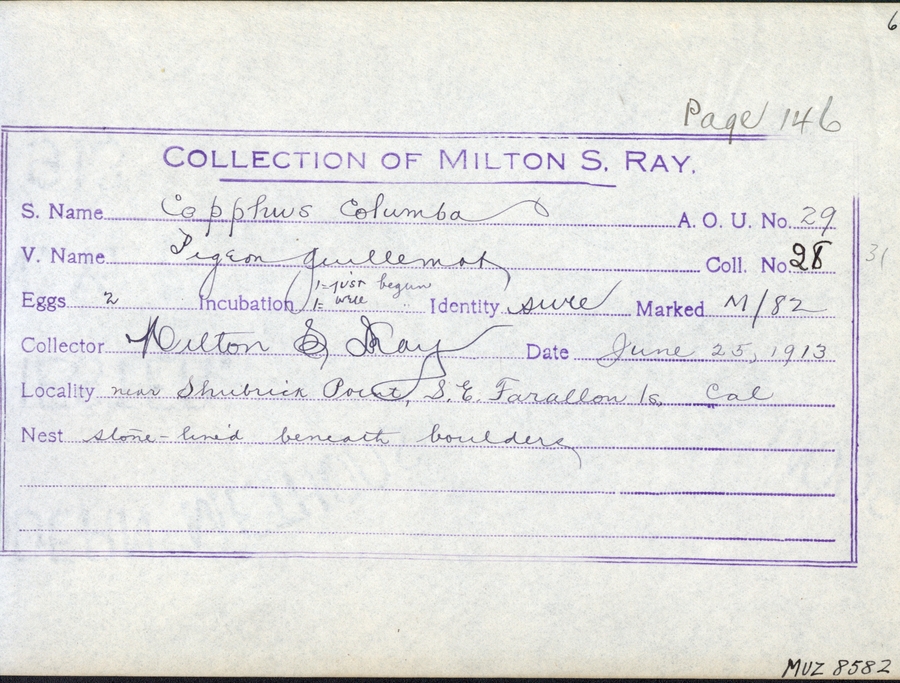 6
Page 146
COLLECTION OF MILTON S. RAY.
S. Name Cepphus Columba A. O. U. No. 29
V. Name Pigeon Guillemot Coll. No. 28 31
Eggs 2 Incubation 1=just begun 1= well Identity sure Marked M/82
Collector Milton S. Ray Date June 25, 1913
Locality near Shubrick Point, S.E. Farallon Is. Cal
Nest stone-lined beneath boulders
MVZ 8582